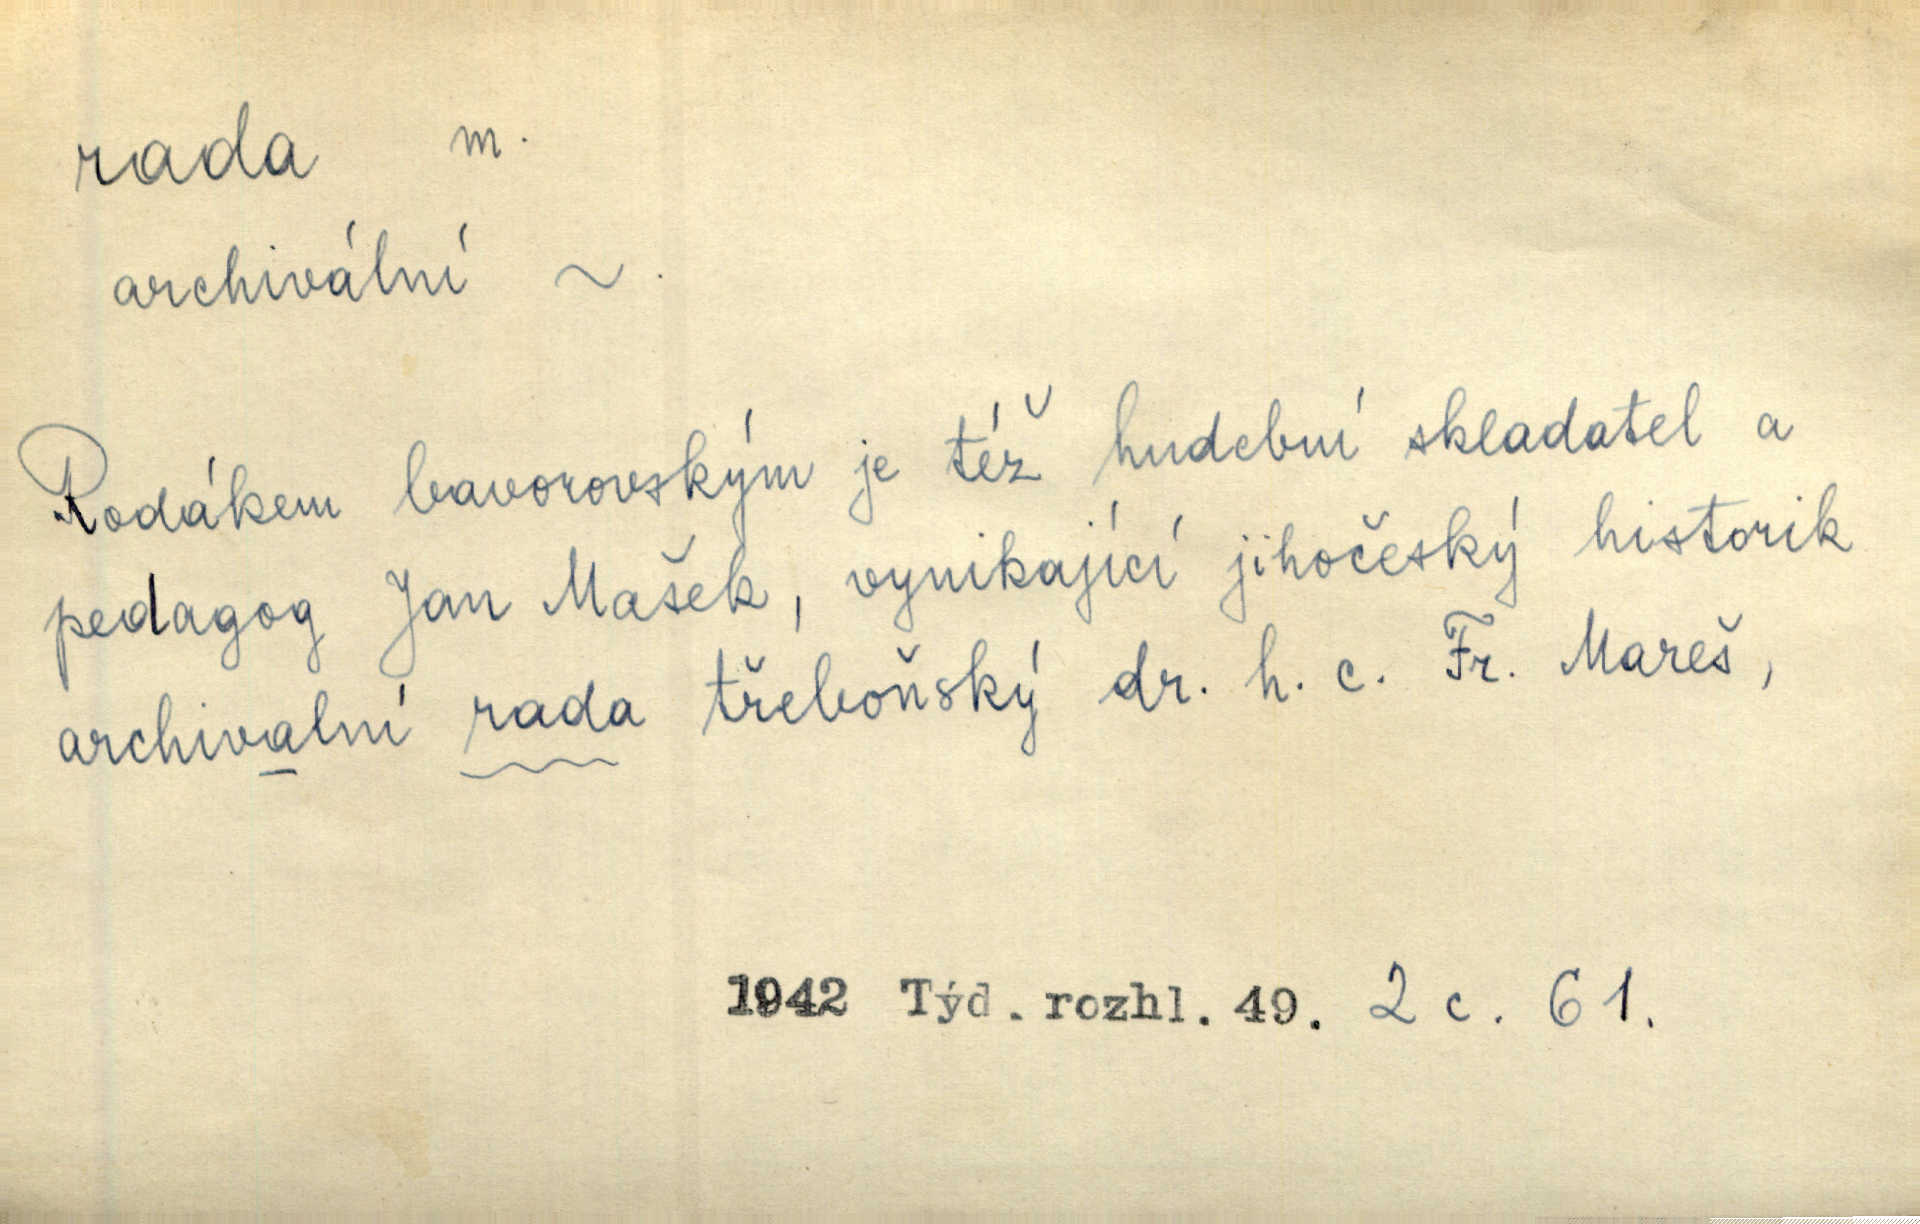 rada m.
archivální ~.
Rodákem bavorovským je též hudební skladatel a
pedagog Jan Mašek, vynikající jihočeský historik
archivalní rada třeboňský dr. h. c. Fr. Mareš,
1942 Týd. rozhl. 49. 2 c. 61.